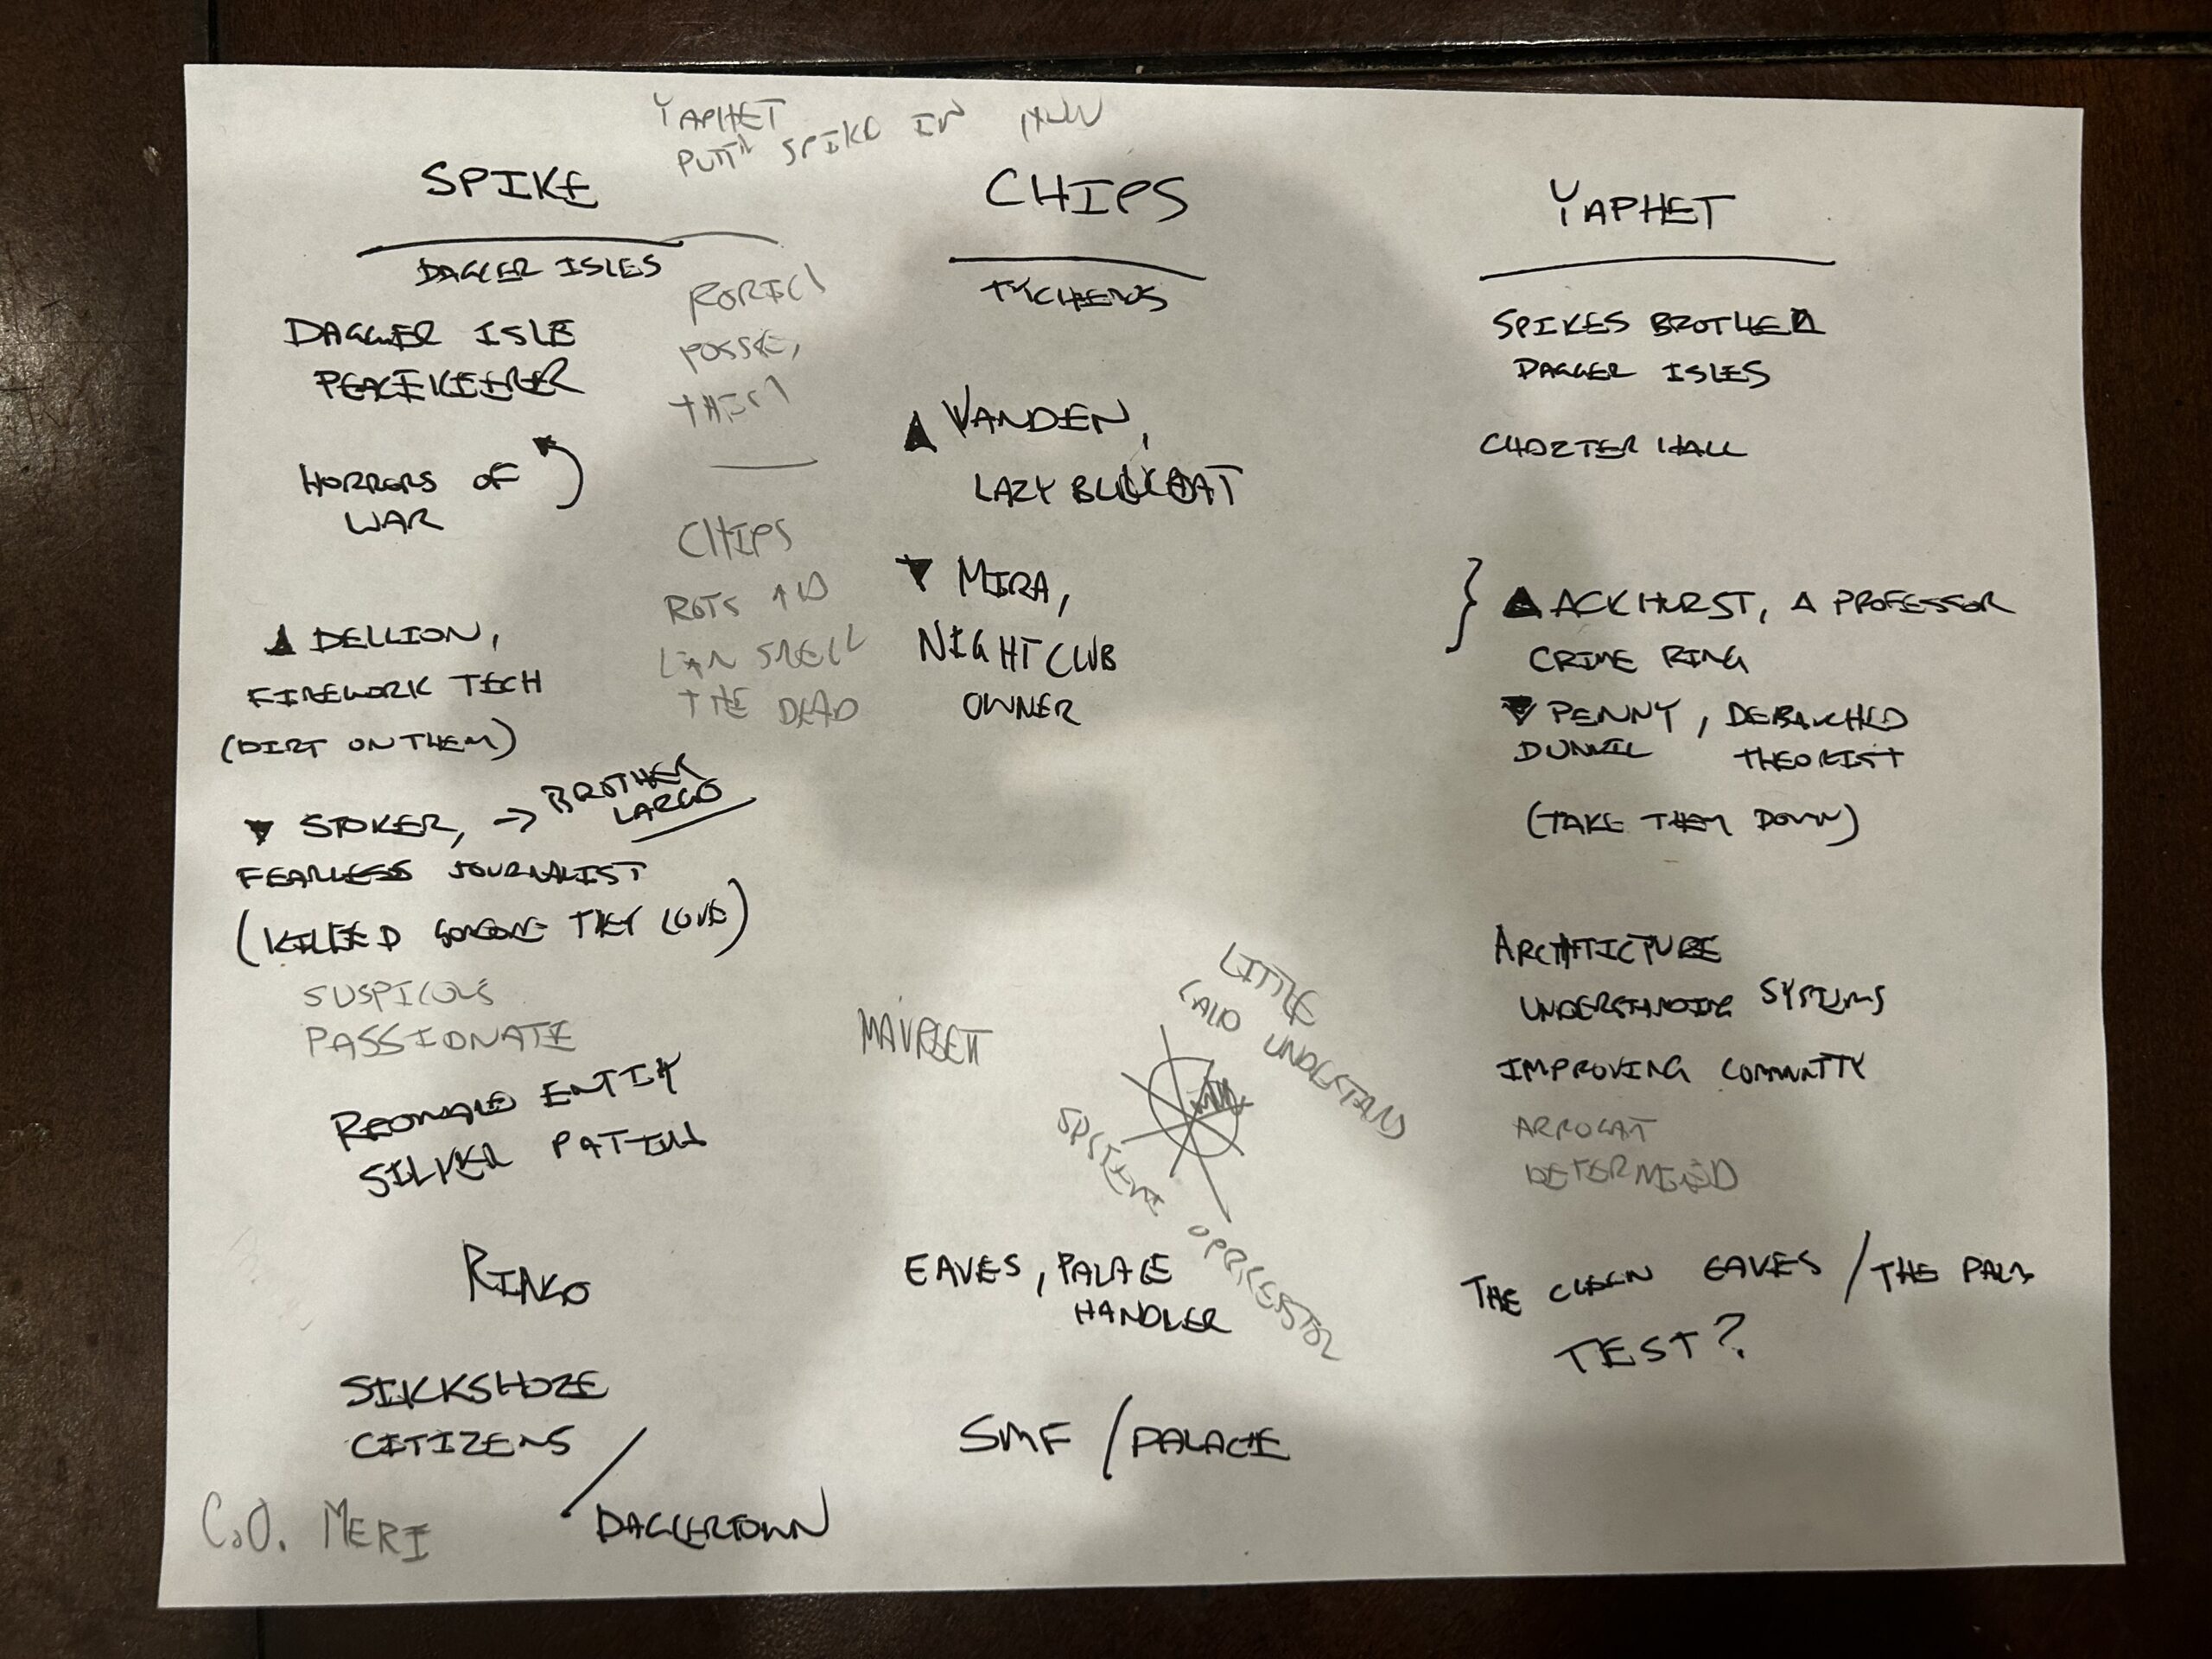 YAPHET
SPIKE IN
SPIKE
DAGGER ISLES
DAGGER ISLE
PEACEKEEPER
HORRORS OF
WAR
DELLION,
FIREWORK TECH
(DIRT ON THEM)
STOKER, → BROTHER
LARGO
FEARLESS JOURNALIST
(KILLED SOMEONE THEY LOVE)
SUSPICOUS
PASSIONATE
ENTITY
SILVER
RINGO
SILKSHORE
CITIZENS /
DAGGERTOWN
C.O. MERI
CHIPS
ROTS
SMELL
THE DEAD
CHIPS
TYCHEROS
VANDEN,
LAZY BLUECOAT
MIRA,
NIGHTCLUB
OWNER
LITTLE
UNDERSTAND
SYSTEM OPPRESSION
EAVES, PALACE
HANDLER
SMF / PALACE
YAPHET
SPIKES BROTHER
DAGGER ISLES
HALL
} ACKHURST, A PROFESSOR
CRIME RING
PENNY, DEBAUCHED
THEORIST
(TAKE THEM DOWN)
ARCHITICTURE
UNDERSTANDING SYSTEMS
IMPROVING COMMUNITY
DETERMINED
THE EAVES / THE
TEST?